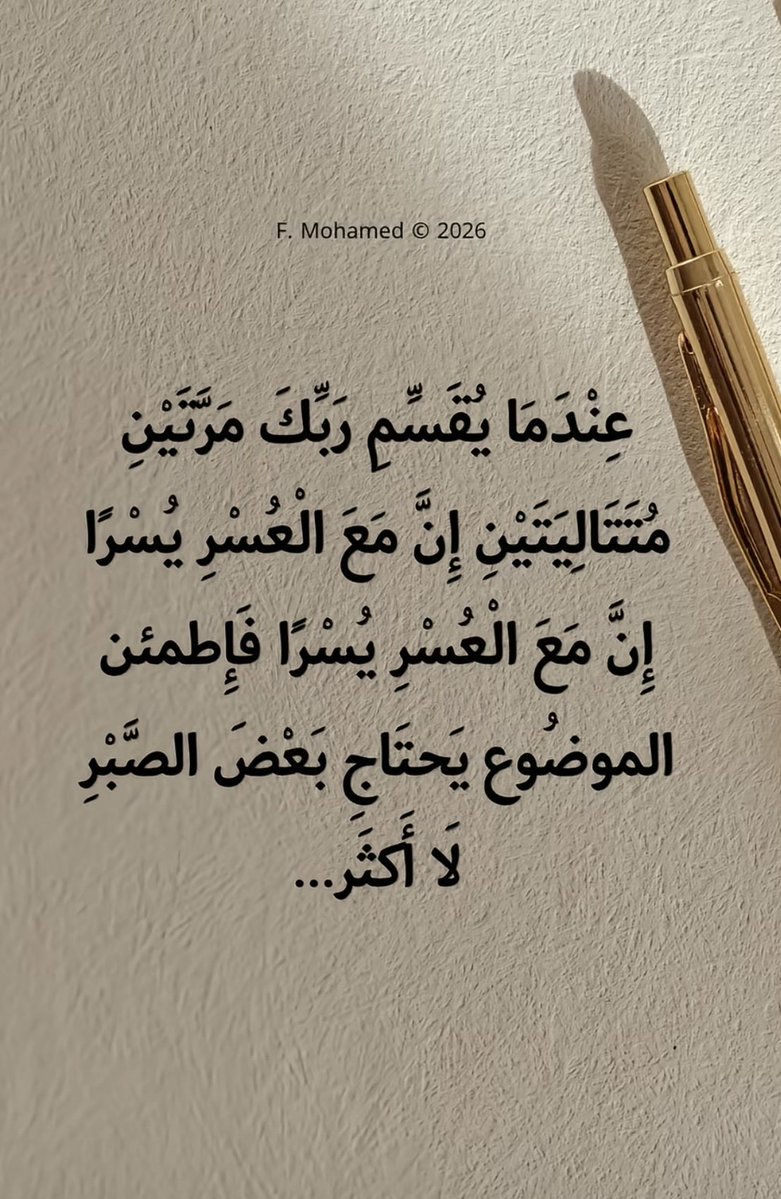 F. Mohamed © 2026
عِنْدَمَا يُقَسِّمِ رَبِّكَ مَرَّتَيْنِ
مُتَتَالِيَتَيْنِ إِنَّ مَعَ الْعُسْرِ يُسْرًا
إِنَّ مَعَ الْعُسْرِ يُسْرًا فَإِطمئن
الموضُوع يَحتَاجِ بَعْضَ الصَّبْرِ
لَا أَكثَر...